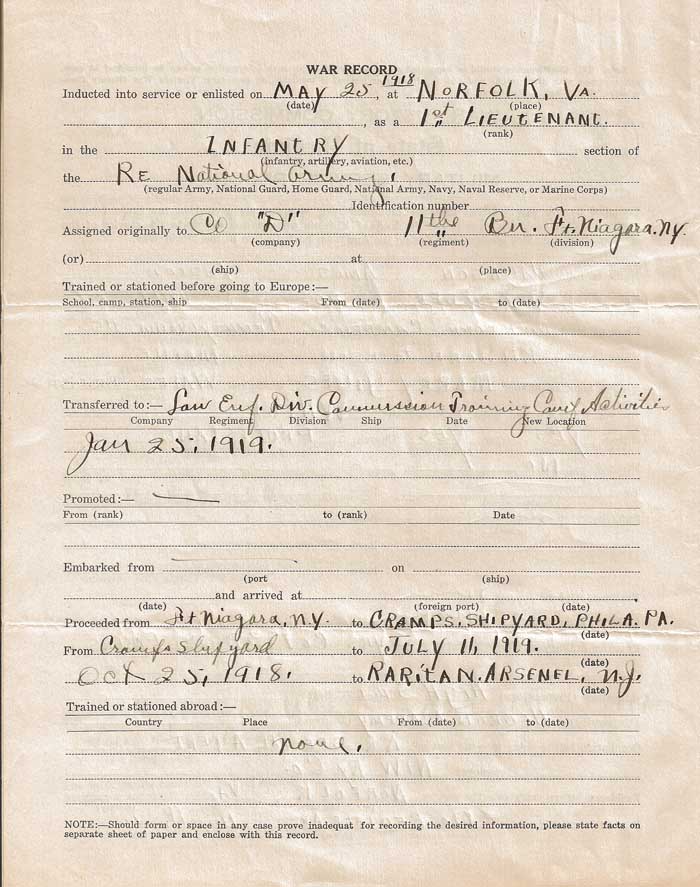 WAR RECORD
Inducted into service or enlisted on MAY 25, 1918 at NORFOLK, VA.
(date) (place)
, as a 1st LIEUTENANT.
(rank)
in the INFANTRY section of
(infantry, artillery, aviation, etc.)
the RE National Army,
(regular Army, National Guard, Home Guard, National Army, Navy, Naval Reserve, or Marine Corps)
Identification number
Assigned originally to Co "D" 11 the Bn. Ft. Niagara. NY
(company) (regiment) (division)
(or) at
(ship) (place)
Trained or stationed before going to Europe:—
School, camp, station, ship From (date) to (date)
Transferred to:— Law Enf. Div. Commission Training Camp Activities
Company Regiment Division Ship Date New Location
Jan 25, 1919.
Promoted:—
From (rank) to (rank) Date
Embarked from on
(port (ship)
and arrived at
(date) (foreign port) (date)
Proceeded from Ft Niagara, N.Y. to CRAMPS, SHIPYARD, PHILA. PA.
(date)
From Cramps Shipyard to JULY 11, 1919.
(date)
Oct 25, 1918. to RARITAN. ARSENEL, N.J.
(date)
Trained or stationed abroad:—
Country Place From (date) to (date)
none.
NOTE:—Should form or space in any case prove inadequat for recording the desired information, please state facts on
separate sheet of paper and enclose with this record.